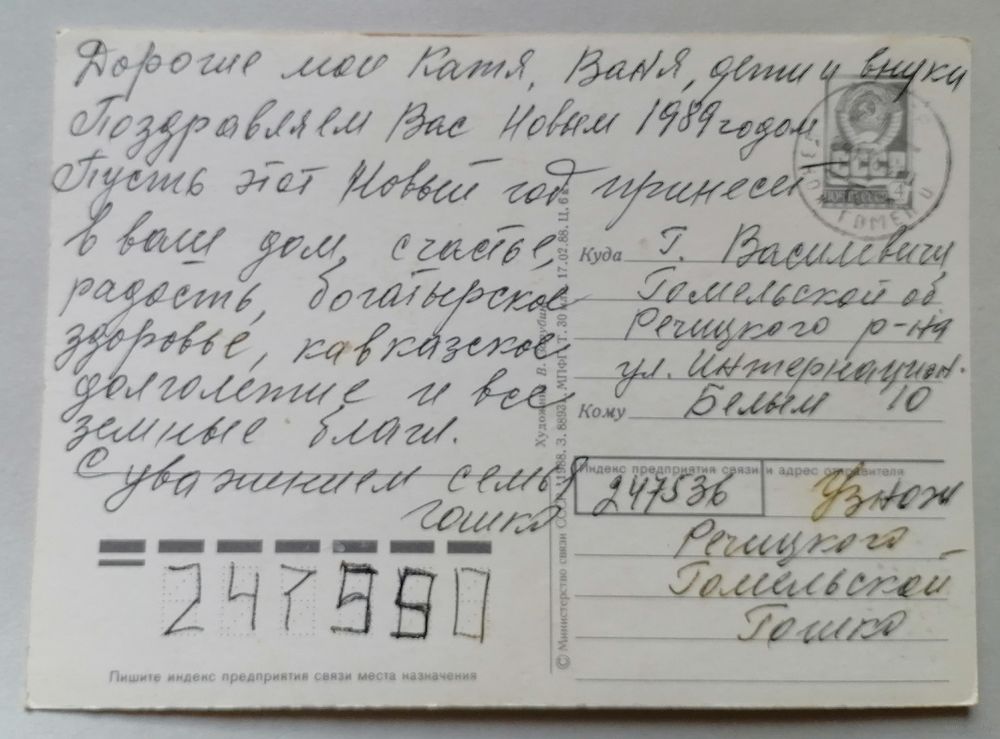 Дорогие мое Катя, Ваня, дети и внуки
Поздравляем Вас Новым 1989 годом
Пусть этот Новый год принесет
в ваш дом, счастье,
радость, богатырское
здоровье, кавказское
долголетие и все
земные блага.
С уважением семья
Гошко
СССР
4
ГОМЕЛ
Куда Г. Василевичи
Гомельской об
Речицкого р-на
ул. Интернацион.
Кому Белым 10
Индекс предприятия связи и адрес отправителя
247536 Узнож
Речицкого
Гомельской
Гошко
247550
Пишите индекс предприятия связи места назначения
© Министерство связи СССР. 1988. З. 8893. МПФГ. Т. 30 17.02.88. Ц. 6 к.
Художник В.